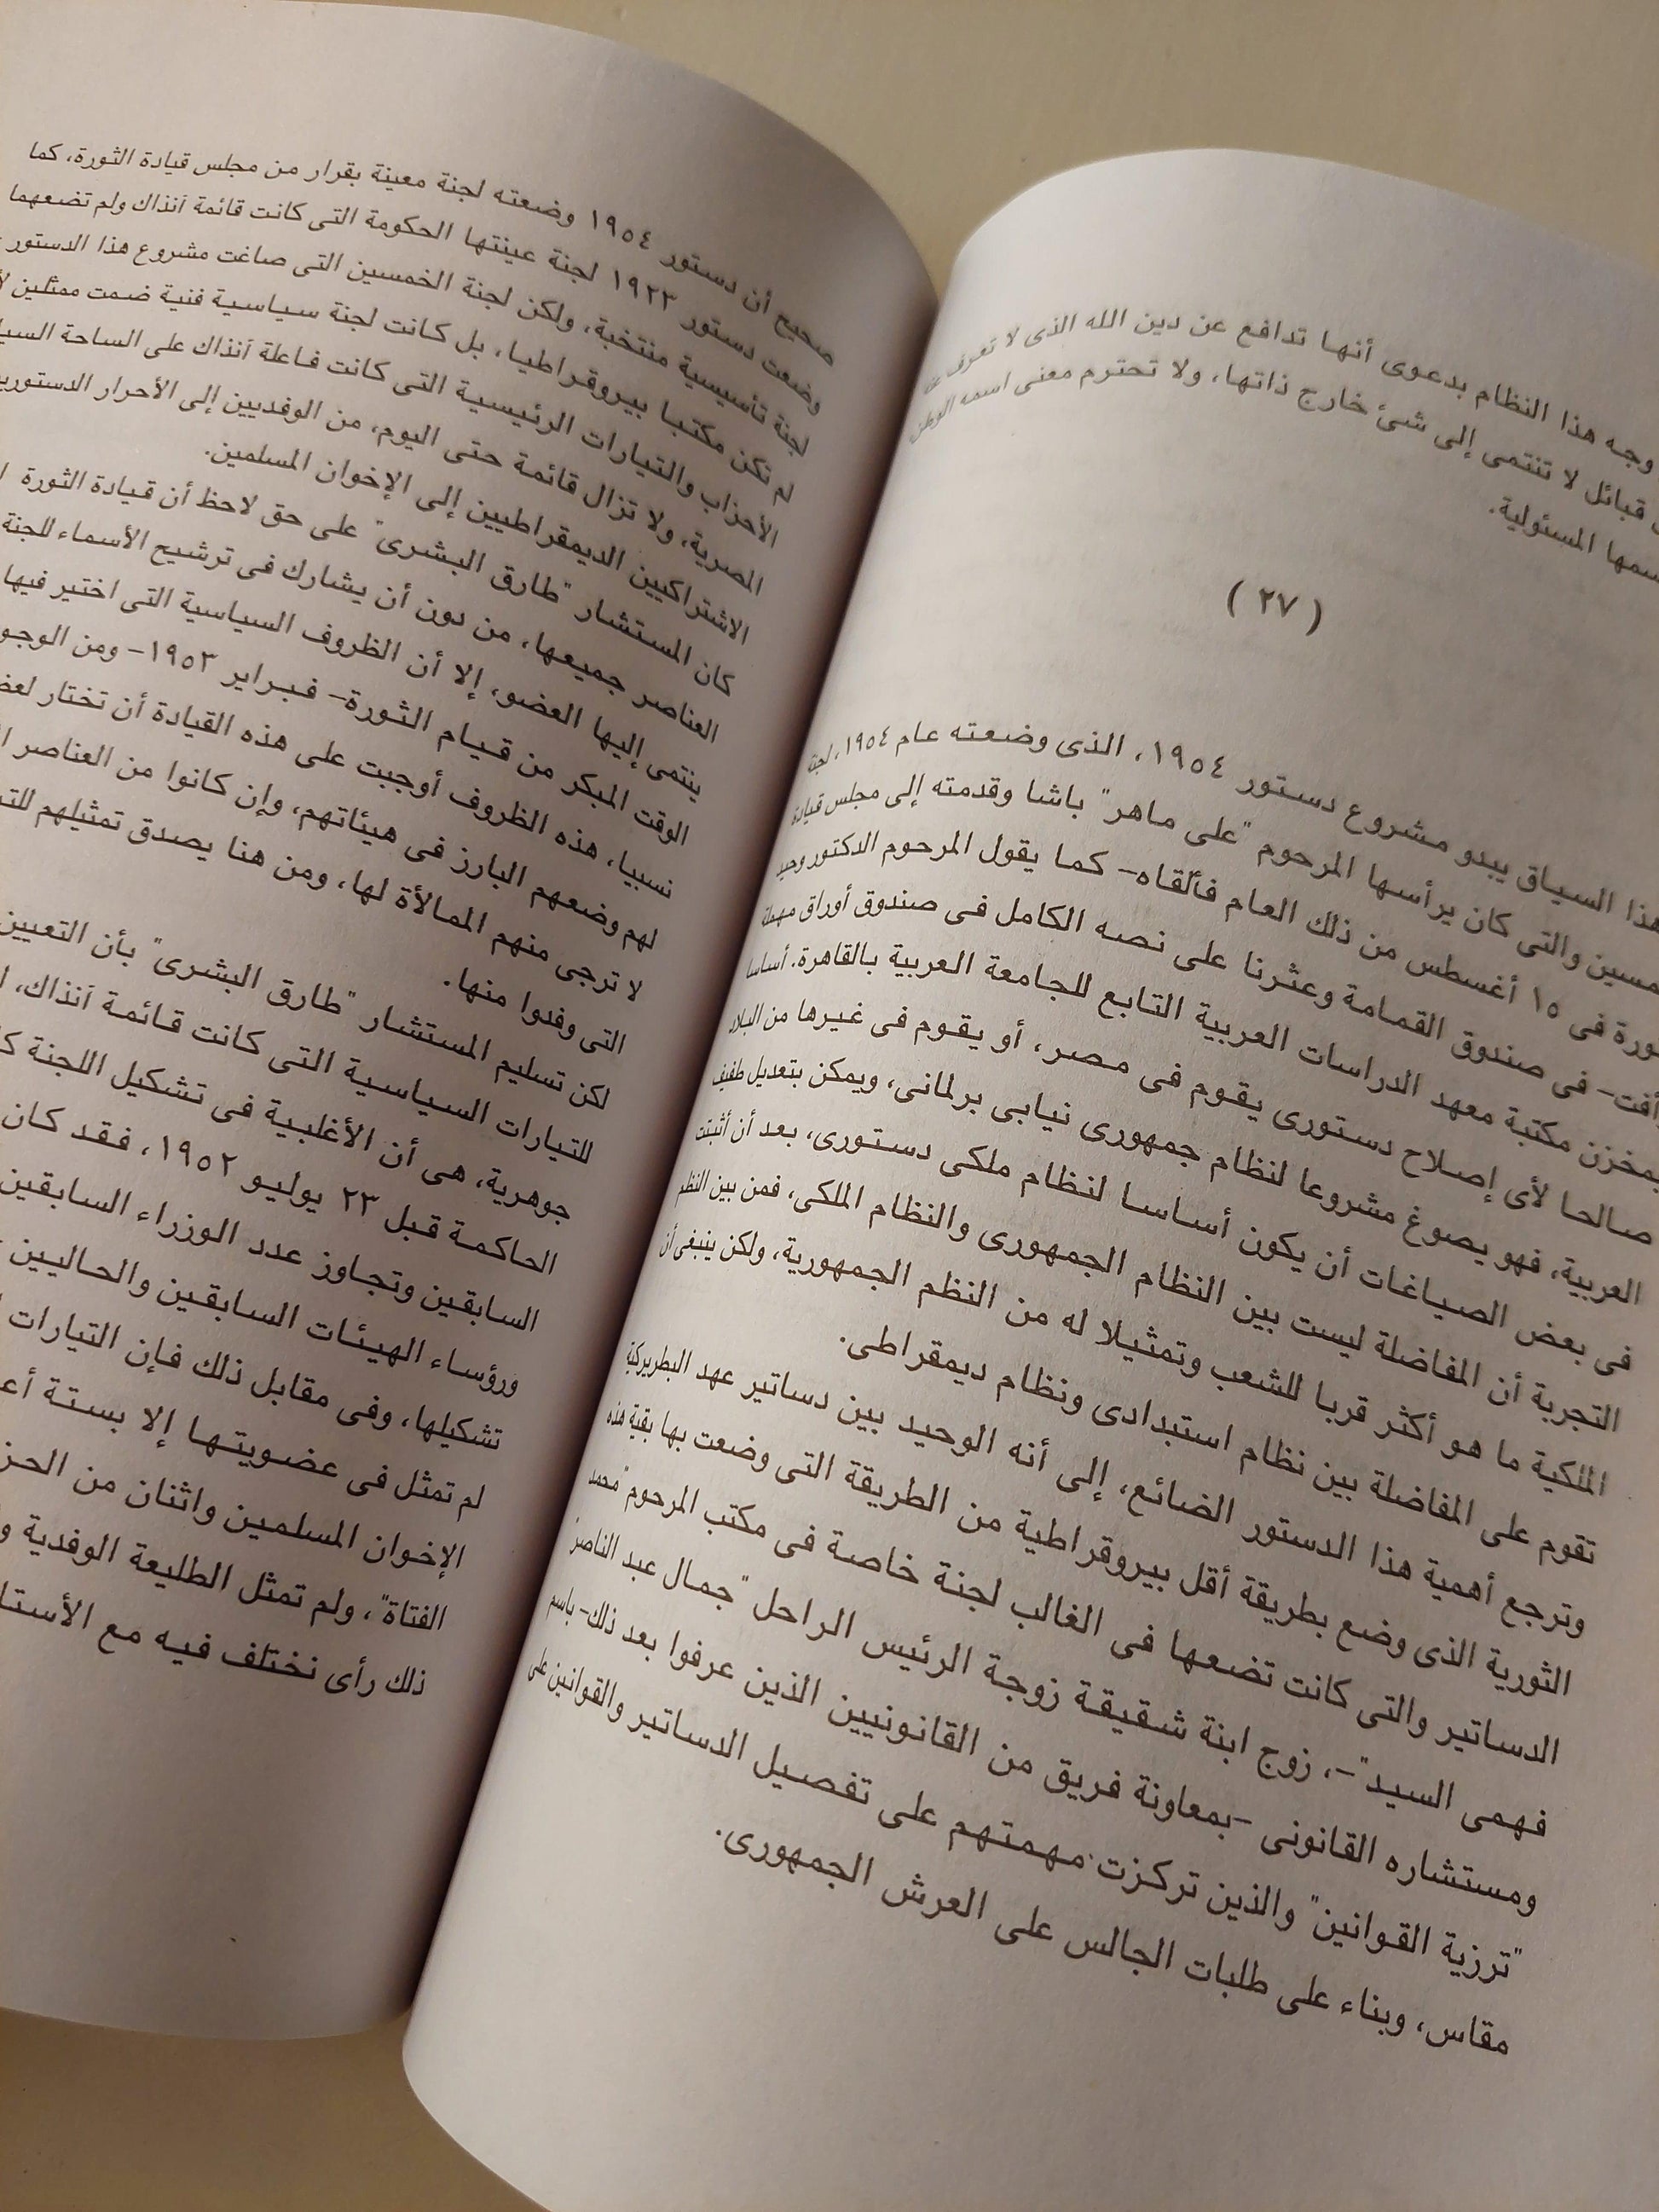 وجه هذا النظام بدعوى أنها تدافع عن دين الله الذى لا تعرف عنه
قبائل لا تنتمى إلى شئ خارج ذاتها، ولا تحترم معنى اسمه الوطن
سمها المسئولية.
( ٢٧ )
هذا السياق يبدو مشروع دستور ١٩٥٤، الذى وضعته عام ١٩٥٤، لجنة
مسين والتى كان يرأسها المرحوم "على ماهر" باشا وقدمته إلى مجلس قيادة
ورة فى ١٥ أغسطس من ذلك العام فألقاه- كما يقول المرحوم الدكتور وحيد
رأفت- فى صندوق القمامة وعثرنا على نصه الكامل فى صندوق أوراق مهملة
بمخزن مكتبة معهد الدراسات العربية التابع للجامعة العربية بالقاهرة. أساسا
صالحا لأى إصلاح دستورى يقوم فى مصر، أو يقوم فى غيرها من البلاد
العربية، فهو يصوغ مشروعا لنظام جمهورى نيابى برلمانى، ويمكن بتعديل طفيف
فى بعض الصياغات أن يكون أساسا لنظام ملكى دستورى، بعد أن أثبتت
التجربة أن المفاضلة ليست بين النظام الجمهورى والنظام الملكى، فمن بين النظم
الملكية ما هو أكثر قربا للشعب وتمثيلا له من النظم الجمهورية، ولكن ينبغى أن
تقوم على المفاضلة بين نظام استبدادى ونظام ديمقراطى.
وترجع أهمية هذا الدستور الضائع، إلى أنه الوحيد بين دساتير عهد البطريركية
الثورية الذى وضع بطريقة أقل بيروقراطية من الطريقة التى وضعت بها بقية هذه
الدساتير والتى كانت تضعها فى الغالب لجنة خاصة فى مكتب المرحوم "محمد
فهمى السيد"-، زوج ابنة شقيقة زوجة الرئيس الراحل "جمال عبد الناصر"
ومستشاره القانونى -بمعاونة فريق من القانونيين الذين عرفوا بعد ذلك- باسم
"ترزية القوانين" والذين تركزت مهمتهم على تفصيل الدساتير والقوانين على
مقاس، وبناء على طلبات الجالس على العرش الجمهورى.
صحيح أن دستور ١٩٥٤ وضعته لجنة معينة بقرار من مجلس قيادة الثورة، كما
وضعت دستور ١٩٢٣ لجنة عينتها الحكومة التى كانت قائمة آنذاك ولم تضعهما
لجنة تأسيسية منتخبة، ولكن لجنة الخمسين التى صاغت مشروع هذا الدستور
لم تكن مكتبا بيروقراطيا، بل كانت لجنة سياسية فنية ضمت ممثلين
الأحزاب والتيارات الرئيسية التى كانت فاعلة آنذاك على الساحة
المصرية، ولا تزال قائمة حتى اليوم، من الوفديين إلى الأحرار
الاشتراكيين الديمقراطيين إلى الإخوان المسلمين.
كان المستشار "طارق البشرى" على حق لاحظ أن قيادة الثورة
العناصر جميعها، من دون أن يشارك فى ترشيح الأسماء للجنة
ينتمى إليها العضو، إلا أن الظروف السياسية التى اختير فيها
الوقت المبكر من قيام الثورة- فبراير ١٩٥٣- ومن
نسبيا، هذه الظروف أوجبت على هذه القيادة أن تختار
لهم وضعهم البارز فى هيئاتهم، وإن كانوا من العناصر
لا ترجى منهم الممالأة لها، ومن هنا يصدق تمثيلهم
التى وفدوا منها.
لكن تسليم المستشار "طارق البشرى" بأن التعيين
للتيارات السياسية التى كانت قائمة آنذاك،
جوهرية، هى أن الأغلبية فى تشكيل اللجنة
الحاكمة قبل ٢٣ يوليو ١٩٥٢، فقد كان
السابقين وتجاوز عدد الوزراء السابقين
ورؤساء الهيئات السابقين والحاليين
تشكيلها، وفى مقابل ذلك فإن التيارات
لم تمثل فى عضويتها إلا بستة
الإخوان المسلمين واثنان من
الفتاة"، ولم تمثل الطليعة الوفدية
ذلك رأى نختلف فيه مع